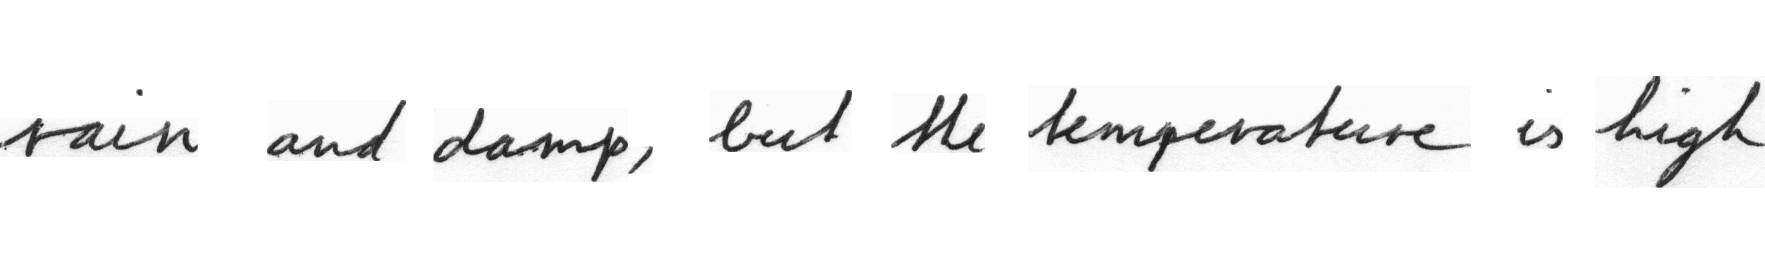 rain and damp, but the temperature is high